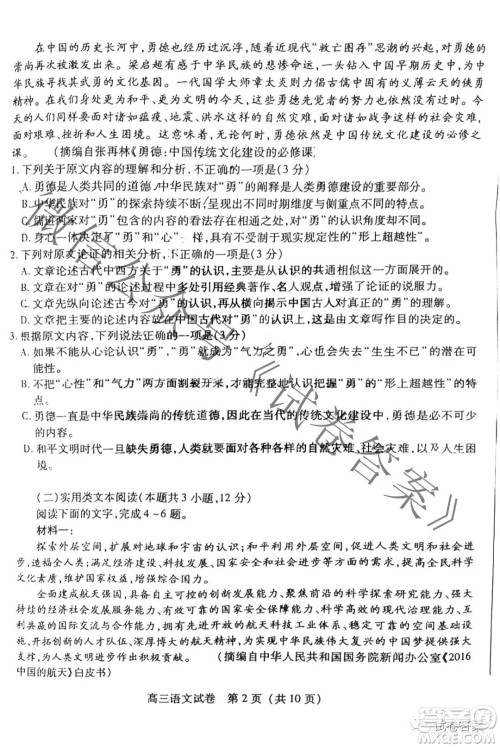 在中国的历史长河中，勇德也经历过沉浮，随着近现代“救亡图存”思潮的兴起，对勇德的
崇尚再次被激发出来。梁启超有感于中华民族的悲惨命运，一头扎入中国早期历史，去发掘中
华民族勇武的文化基因。一代国学大师章太炎则力倡古儒中固有的义薄云天的侠勇精神。
在我们身处更为和平、更为文明的今天，我们同样需要面对诸如战争这样的社会灾难。今
天的人类依旧需要面对诸如地震、洪水这样的自然灾难，勇德依然是中国传统文化建设的必修之
课。
（摘编自张再林《勇德：中国传统文化建设的必修课》
1. 下列关于原文内容的理解和分析，不正确的一项是(3 分)
A. 勇德是人类共同的道德，中华民族对“勇”的阐释是人类勇德的重要组成部分。
B. 中华民族对“勇”的探索持续不断，呈现出不同时期维度与侧重点的不同特点。
C. 儒道两家对“勇”的内容的看法存在差异，但都认同勇与其他美德有关联。
D. “心性”一样，均具有真实的“形上超越性”。
2. 下列对原文论证的相关分析，不正确的一项是(3 分)
A. 文章论述古代中西方关于“勇”的认识的共同之处，体现出人类对勇的认识的共性。
B. 文章在“勇”的论述过程中多处引用经典、名人名言，增强了论述的说服力。
C. 文章先纵向论述古今对“勇”的认识，再横向展示出中国古人对认识的发展历程。
D. 文章在论述时，以中国古代对“勇”的认识为重点，体现出作者写作的针对性。
3. 根据原文内容，下列说法正确的一项是(3 分)
A. 如果不能从心论认识“勇”，“勇”的形上超越性就不可能，人类也会失去“生生不已”的潜在
可能。
B. 不把“心性”和“气力”两方面发展到极致，就不可能达到“勇”的最高境界，实现真正的“形上
超越性”。
C. 勇德一直是中华民族崇尚的传统道德，因此在当代的传统文化建设中，勇德是必不可少
的内容。
D. 和平文明时代一旦缺失勇德，人类就要面对各种各样的自然灾难、社会灾难，人类发展就
会受到影响。
(二)实用类文本阅读(本题共 3 小题，12 分)
阅读下面的文字，完成 4～6 题。
材料一：
探索外层空间，扩展对地球和宇宙的认识；和平利用外层空间，促进人类文明和社会进
步，造福全人类；满足经济建设、科技发展、国家安全和社会进步等方面的需求，提高全民科学
文化素质，维护国家权益，增强综合国力。
全面建成航天强国，具备自主可控的创新发展能力、聚焦前沿的科学探索研究能力、强大
持续的经济社会发展服务能力、有效可靠的国家安全保障能力、科学高效的现代治理能力、互
利共赢的国际交流与合作能力，拥有先进开放的航天科技工业体系、稳定可靠的空间基础设
施、开拓创新的人才队伍、深厚博大的航天精神，为实现中华民族伟大复兴的中国梦提供强大
支撑，为人类文明进步作出积极贡献。
（摘编自中华人民共和国国务院新闻办公室《2016
中国的航天》白皮书）
高三语文试卷　第 2 页（共 10 页）
微信公众号《试卷答案》
试卷答案